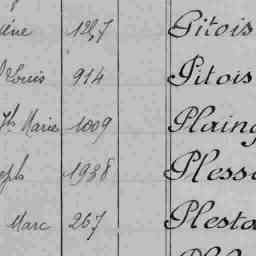 Pitois
Louis 914 Pitois
Jh Marie 1009 Plaing
1938 Pless
Marc 267 Plesta